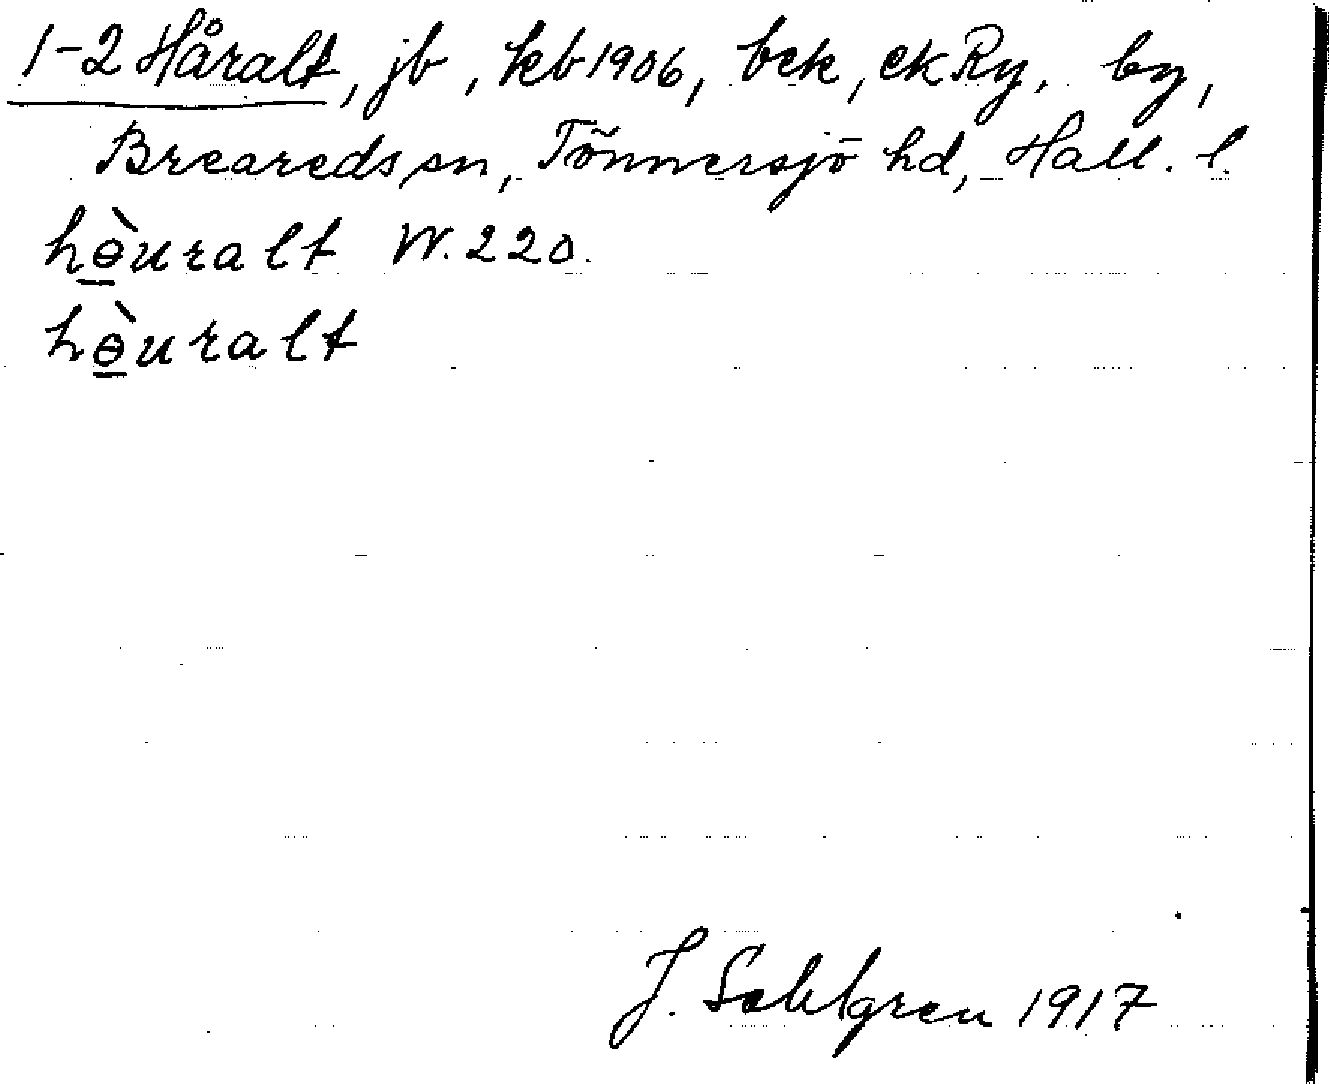 1-2 Håralt, jb, kb 1906, bek, ek Ry. by,
Breareds sn, Tönnersjö hd, Hall. l.
hɵ̀uralt W. 220.
hɵ̀uralt
J. Sahlgren 1917